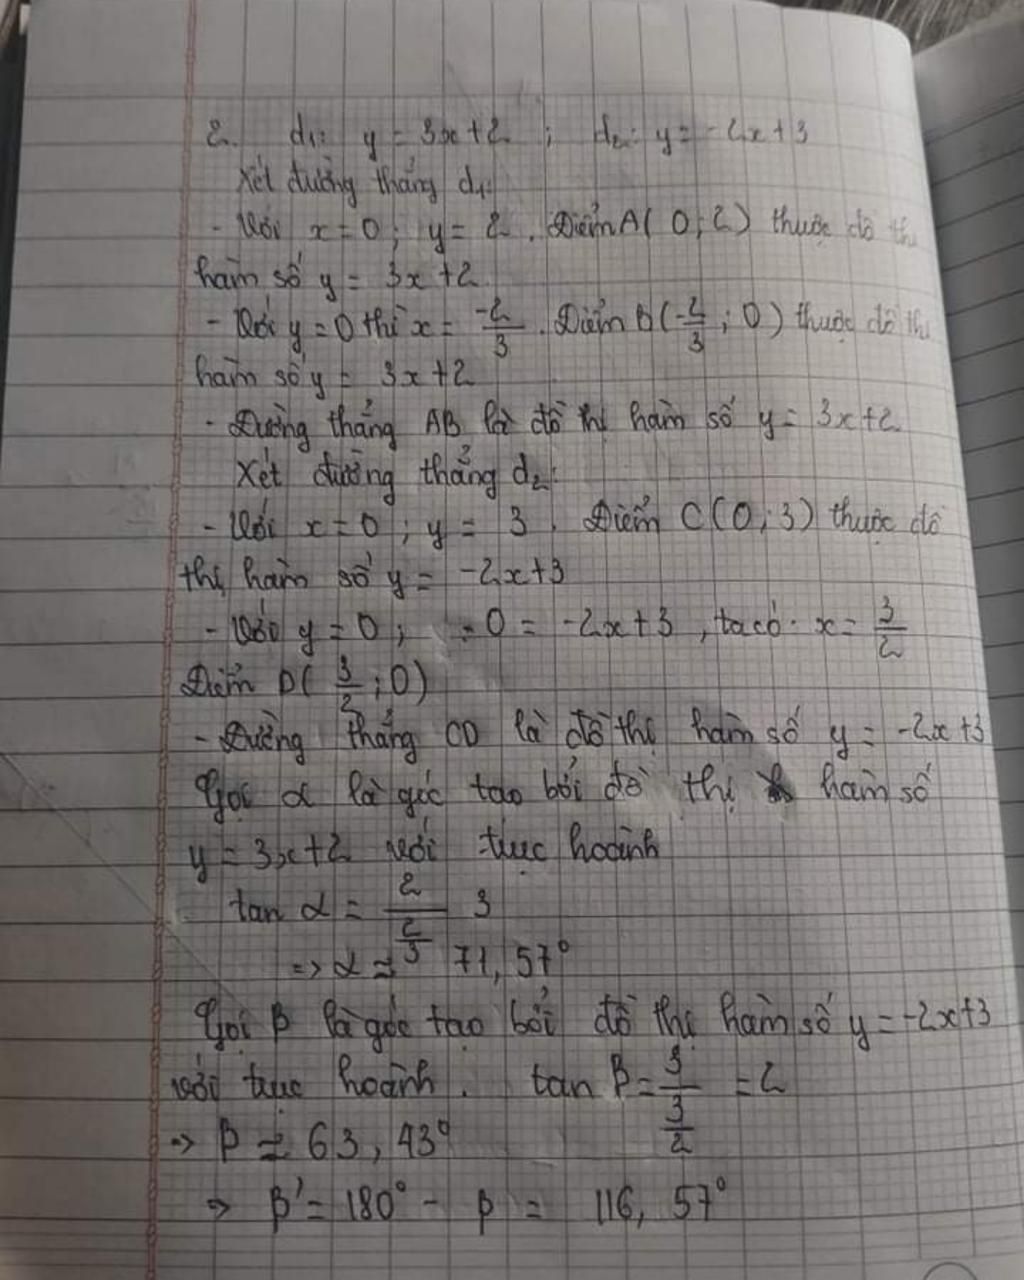 2. d₁: y = 3x+2 ; d₂: y = -2x+3
Xét đường thẳng d₁:
- Với x=0; y= 2. Điểm A( 0; 2) thuộc đồ thị
hàm số y = 3x+2
- Với y=0 thì x= -2/3. Điểm B(-2/3; 0) thuộc đồ thị
hàm số y = 3x+2
- Đường thẳng AB là đồ thị hàm số y= 3x+2
Xét đường thẳng d₂:
- Với x=0; y= 3. Điểm C(0; 3) thuộc đồ
thị hàm số y= -2x+3
- Với y=0; 0= -2x+3, ta có: x= 3/2
Điểm D( 3/2; 0)
- Đường thẳng CD là đồ thị hàm số y= -2x+3
Gọi α là góc tạo bởi đồ thị hàm số
y=3x+2 với trục hoành
tan α = 2/(2/3) 3
=> α ≈ 71,57°
Gọi β là góc tạo bởi đồ thị hàm số y=-2x+3
với trục hoành. tan β= 3/(3/2) =2
=> β ≈ 63,43°
=> β' = 180° - β = 116,57°